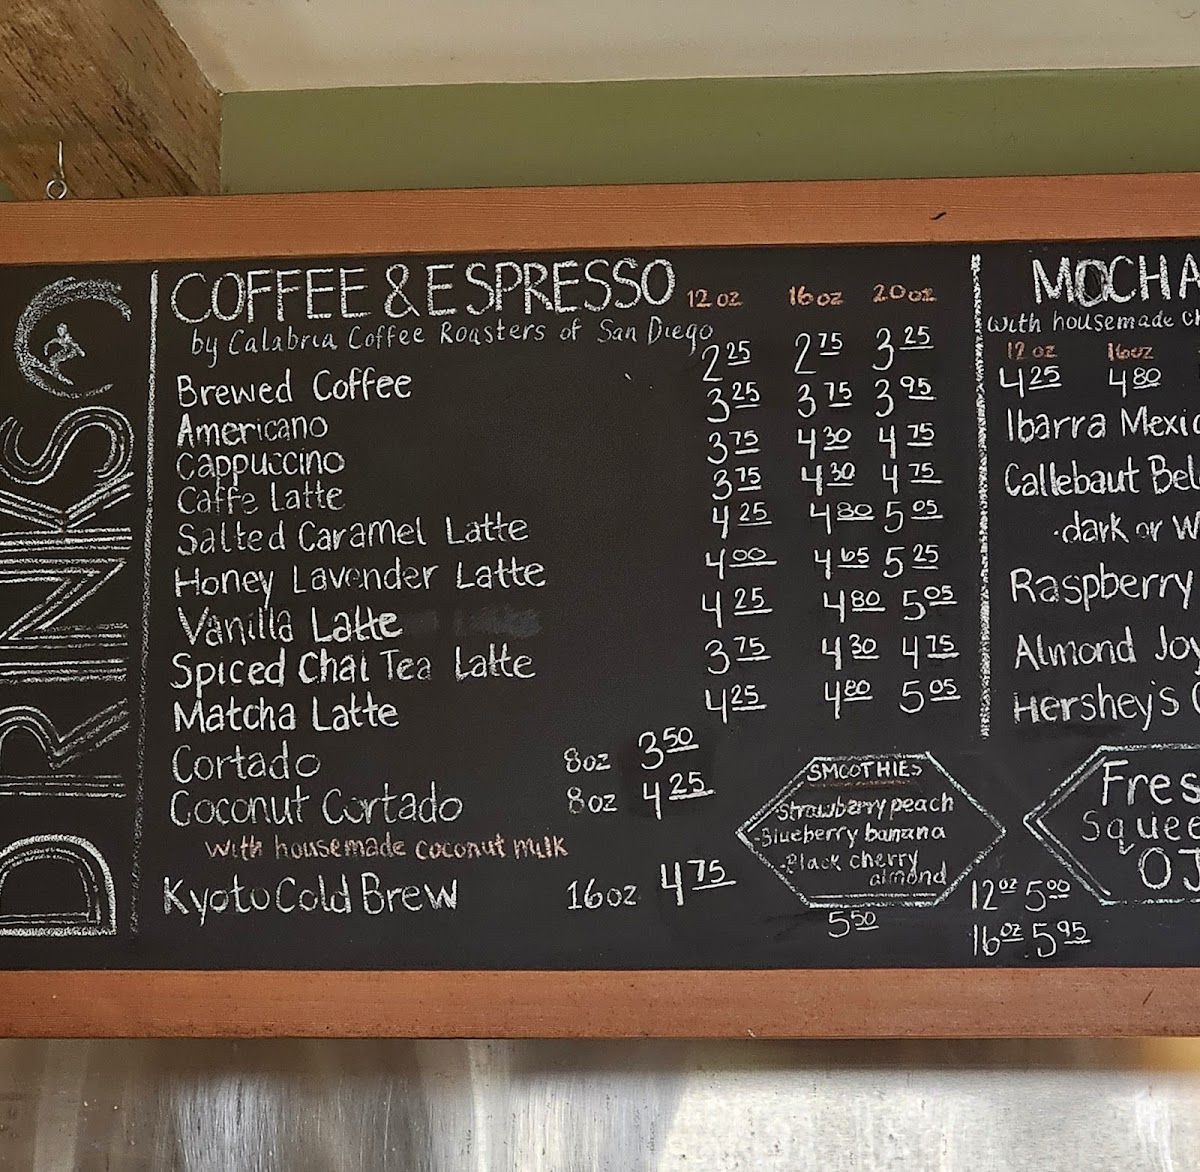 DRINKS
COFFEE & ESPRESSO 12 oz 16 oz 20 oz
by Calabria Coffee Roasters of San Diego
Brewed Coffee 2 25 2 75 3 25
Americano 3 25 3 75 3 95
Cappuccino 3 75 4 30 4 75
Caffe Latte 3 75 4 30 4 75
Salted Caramel Latte 4 25 4 80 5 05
Honey Lavender Latte 4 00 4 65 5 25
Vanilla Latte 4 25 4 80 5 05
Spiced Chai Tea Latte 3 75 4 30 4 75
Matcha Latte 4 25 4 80 5 05
Cortado 8oz 3 50
Coconut Cortado 8oz 4 25
with housemade coconut milk
Kyoto Cold Brew 16oz 4 75
SMOOTHIES
-Strawberry peach
-Blueberry banana
-Black cherry
almond
5 50
MOCHA
with housemade ch
12 oz 16oz
4 25 4 80
Ibarra Mexic
Callebaut Bel
·dark or w
Raspberry
Almond Joy
Hershey's
Fres
Squee
OJ
12 oz 5 00
16 oz 5 95